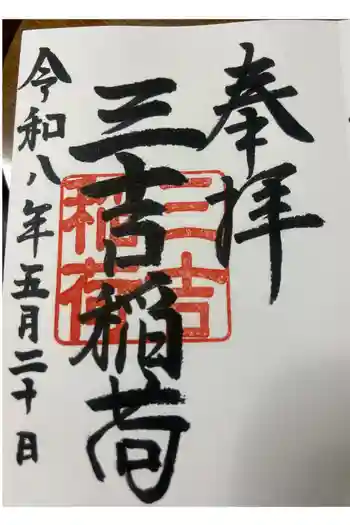 奉拝
三吉稲荷
三吉
稲荷
令和八年五月二十日